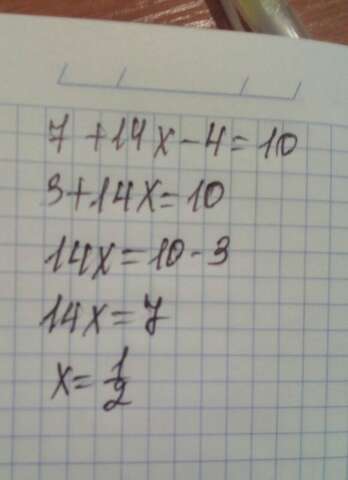 7 + 14x - 4 = 10
3 + 14x = 10
14x = 10 - 3
14x = 7
x = 1/2